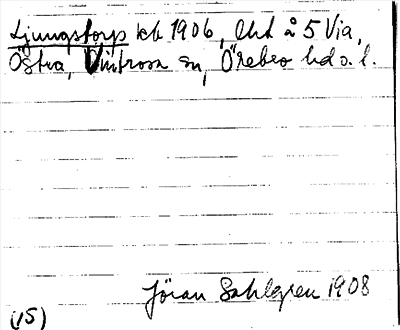 Ljungstorp kb 1906, Cht å 5 Via,
Östra, Vintrosa sn, Örebro hd o. l.
Jöran Sahlgren 1908
(15)